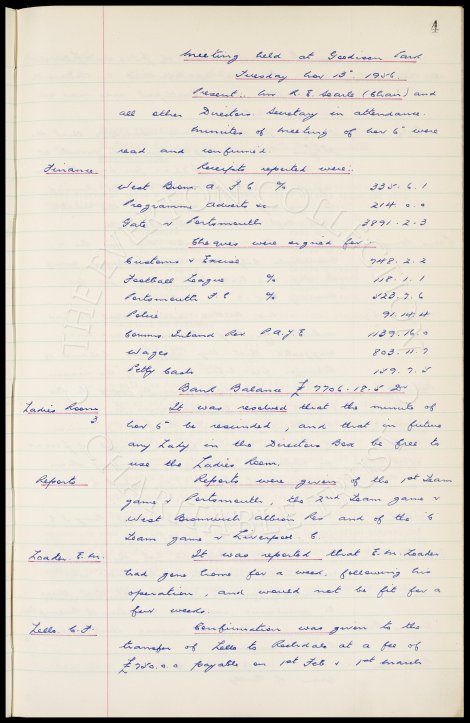 4
Meeting held at Goodison Park
Tuesday Nov 13th, 1956.
Present:. Mr R. E. Searle (Chair) and
all other Directors. Secretary in attendance.
Minutes of Meeting of Nov 6th were
read and confirmed.
Finance. Receipts reported were:.
West Brom. A. F C % 335. 6. 1
Programme Adverts 214. 0. 0
Gate v Portsmouth 3891. 2. 3
Cheques were signed for:-
Customs & Excise 748. 2. 2
Football League % 118. 1. 1
Portsmouth F C % 523. 7. 6
Police 91. 14. 4
Comms. Inland Rev P.A.Y.E 1139. 16. 0
Wages 803. 11. 7
Petty Cash 159. 7. 5
Bank Balance £ 7706. 18. 5 Dr
Ladies Room It was resolved that the minute of
3 Nov 6th be rescinded, and that in future
any Lady in the Directors Box be free to
use the Ladies Room.
Reports Reports were given of the 1st Team
game v Portsmouth, the 2nd Team game v
West Bromwich Albion Res and of the "B"
Team game v Liverpool
Loader. E. W. It was reported that E. W. Loader
had gone home for a week, following his
operation, and would not be fit for a
few weeks.
Lello. C. F. Confirmation was given to the
transfer of Lello to Rochdale at a fee of
£750. 0. 0 payable on 1st Feb & 1st March
THE EVERTON COLLECTION
CHARITABLE TRUST